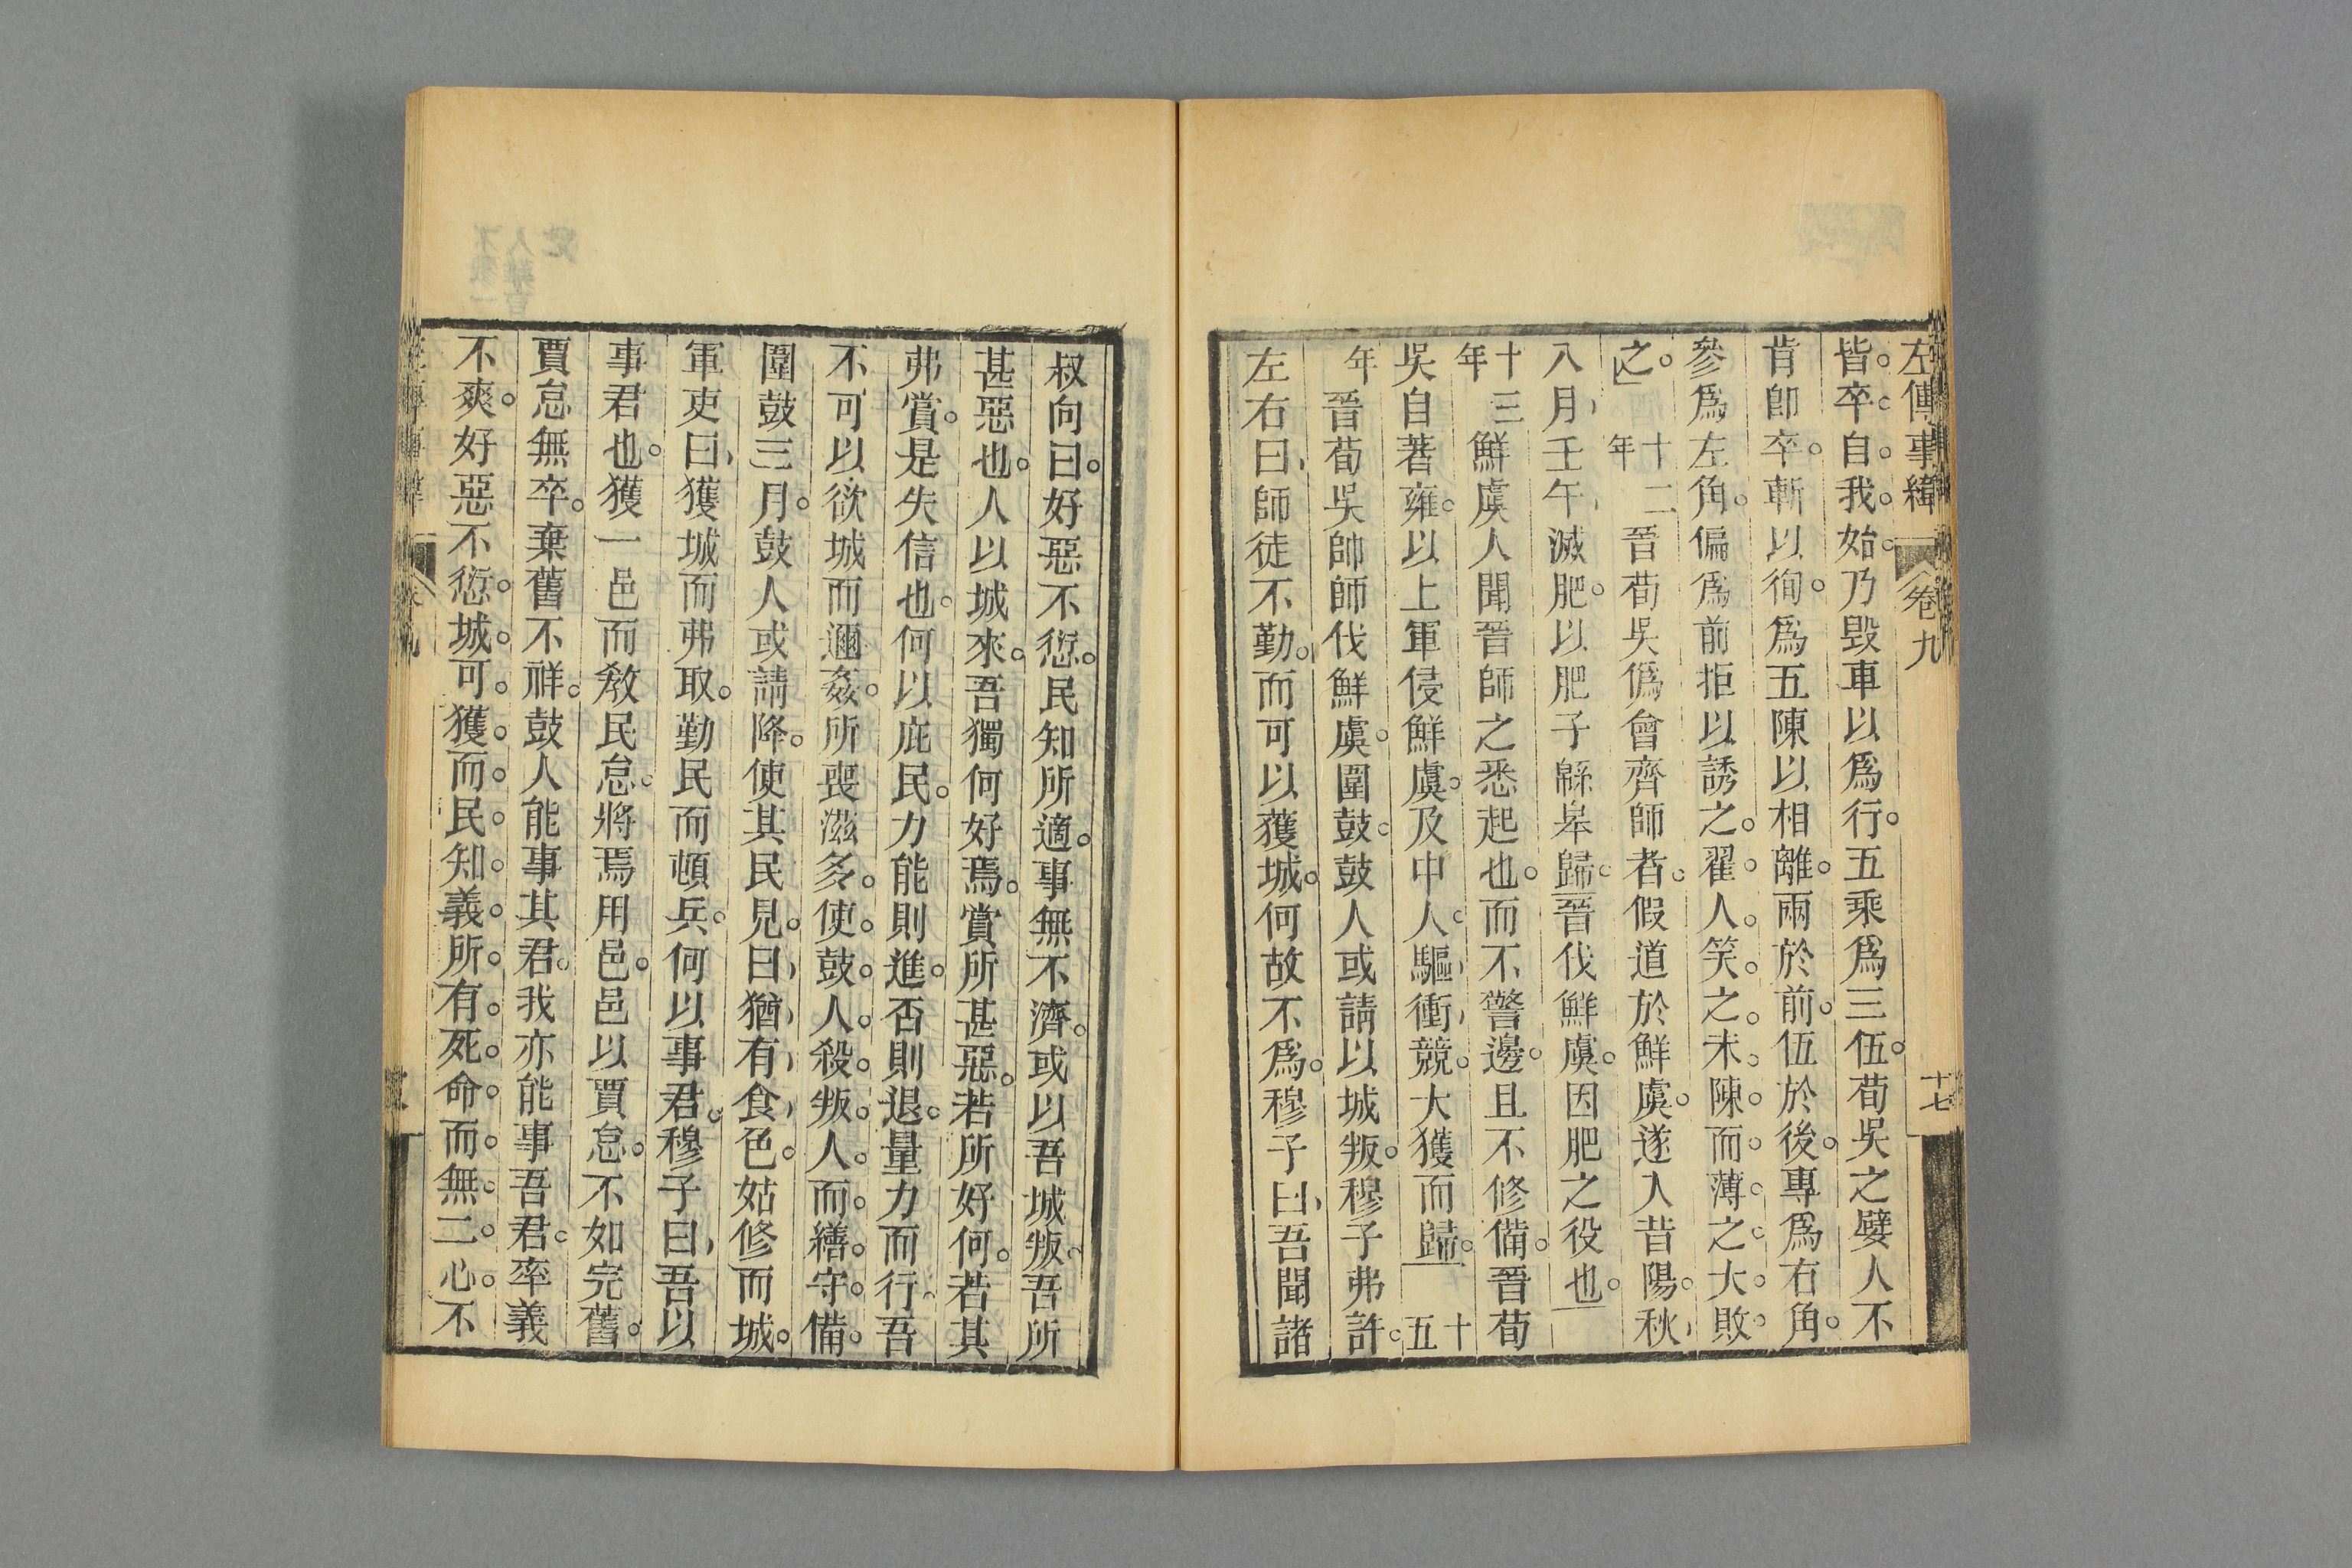 左傳事緯
卷九
十七
皆卒自我始乃毀車以爲行五乘爲三伍荀吳之嬖人不
肯卽卒斬以徇爲五陳以相離兩於前伍於後專爲右角
參爲左角偏爲前拒以誘之翟人笑之未陳而薄之大敗
之十二年晉荀吳僞會齊師者假道於鮮虞遂入昔陽秋
八月壬午滅肥以肥子緜皋歸晉伐鮮虞因肥之役也
十三年鮮虞人聞晉師之悉起也而不警邊且不修備晉荀
吳自著雍以上軍侵鮮虞及中人驅衝競大獲而歸十五
年晉荀吳帥師伐鮮虞圍鼓鼓人或請以城叛穆子弗許
左右曰師徒不勤而可以獲城何故不爲穆子曰吾聞諸
叔向曰好惡不愆民知所適事無不濟或以吾城叛吾所
甚惡也人以城來吾獨何好焉賞所甚惡若所好何若其
弗賞是失信也何以庇民力能則進否則退量力而行吾
不可以欲城而邇姦所喪滋多使鼓人殺叛人而繕守備
圍鼓三月鼓人或請降使其民見曰猶有食色姑修而城
軍吏曰獲城而弗取勤民而頓兵何以事君穆子曰吾以
事君也獲一邑而敎民怠將焉用邑邑以賈怠不如完舊
賈怠無卒棄舊不祥鼓人能事其君我亦能事吾君率義
不爽好惡不愆城可獲而民知義所有死命而無二心不